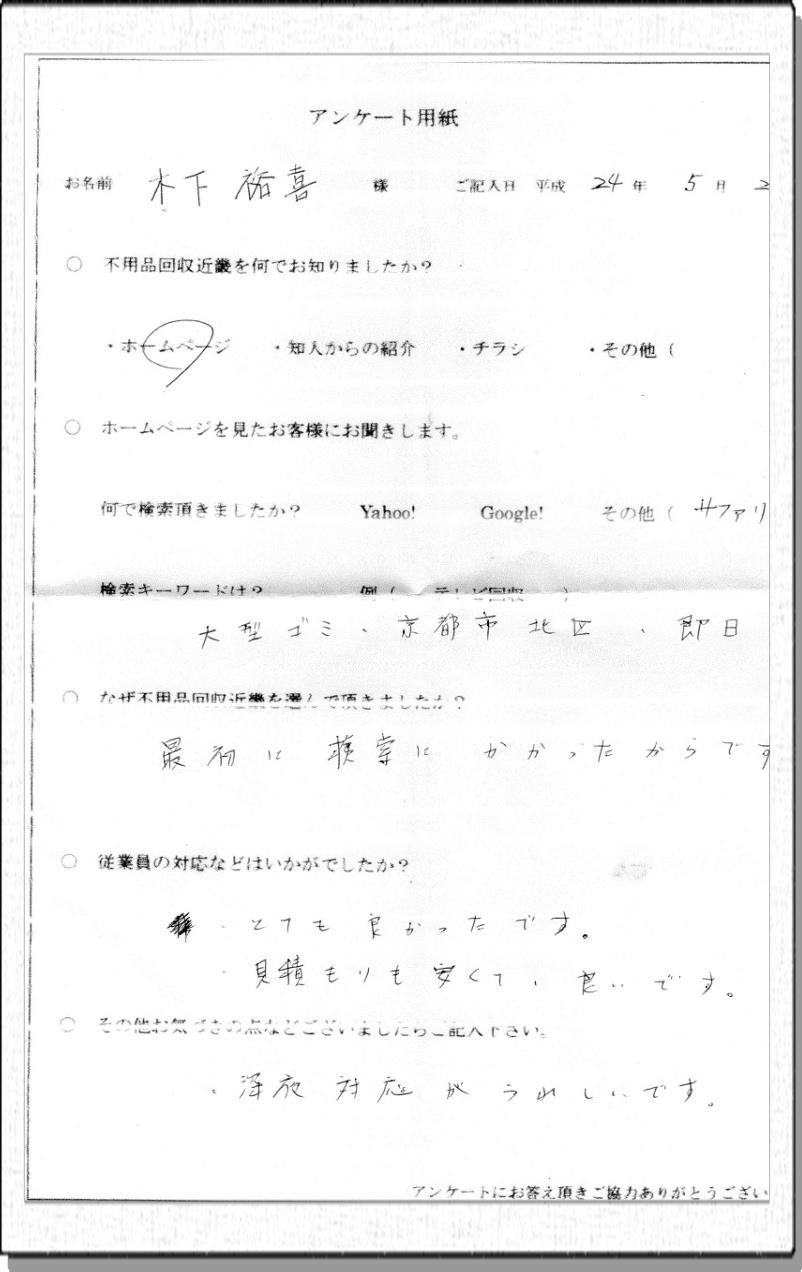 アンケート用紙
お名前 木下 祐喜 様 ご記入日 平成 24 年 5 月 2
○ 不用品回収近畿を何でお知りましたか?
・ホームページ ・知人からの紹介 ・チラシ ・その他(
○ ホームページを見たお客様にお聞きします。
何で検索頂きましたか? Yahoo! Google! その他( サファリ
検索キーワードは? 例( テレビ回収 )
大型ゴミ、京都市北区、即日
○ なぜ不用品回収近畿を選んで頂きましたか?
最初に検索にかかったからです
○ 従業員の対応などはいかがでしたか?
・とても良かったです。
・見積もりも安くて、良いです。
○ その他お気づきの点などございましたらご記入下さい。
・深夜対応がうれしいです。
アンケートにお答え頂きご協力ありがとうござい